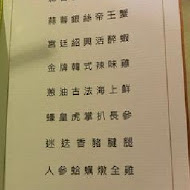 蒜蓉銀絲帝王蟹
宮廷紹興活醉蝦
金牌韓式辣味雞
蔥油古法海上鮮
蠔皇虎掌扒長參
迷迭香豬腱腿
人參蛤蠣燉全雞